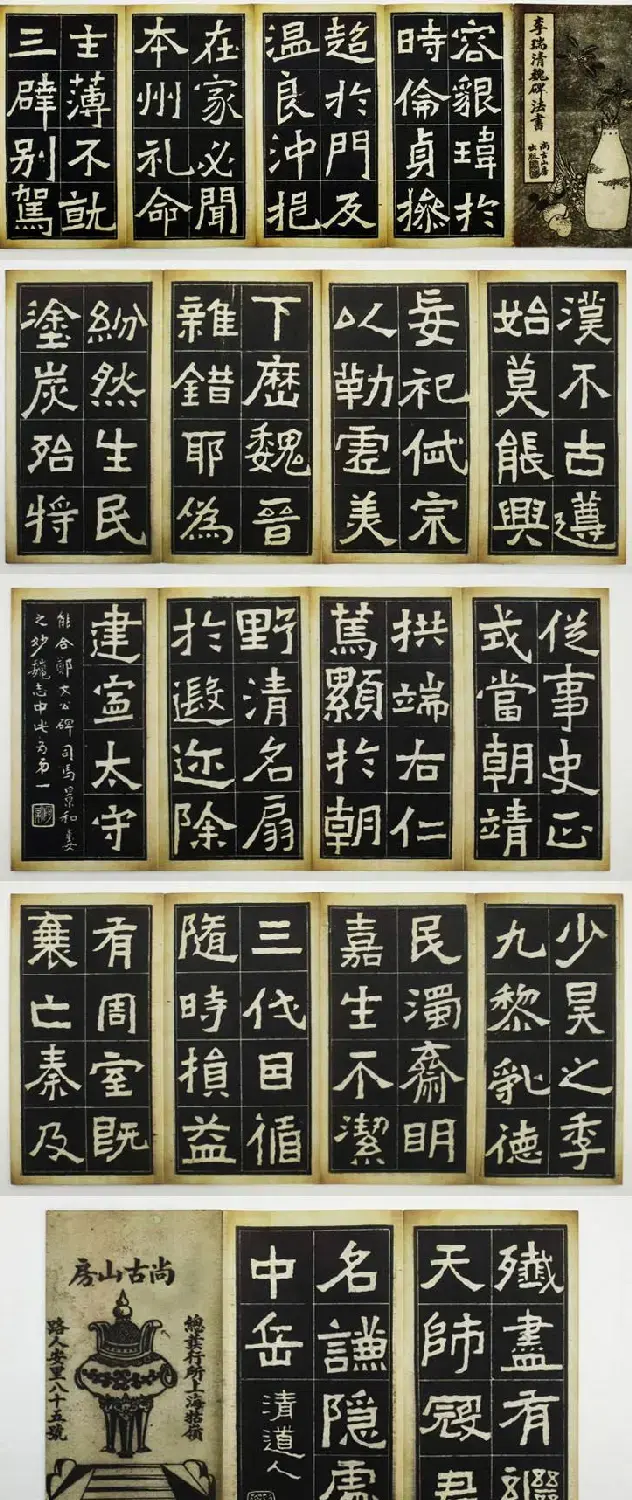 李瑞清魏碑法書
尚古山房
出版
容貌瑋於
時倫貞操
超於門及
温良沖挹
在家必聞
本州礼命
主薄不就
三辟别駕
漢不古遵
始莫能興
妄祀宗
以勒虚美
下歷魏晉
雜錯耶偽
紛然生民
塗炭殆將
従事史正
式當朝靖
拱端右仁
篤顯於朝
野清名扇
於遐迩除
建寍太守
能合鄭文公碑司馬景和妻
之妙魏志中此為弟一
少昊之季
九黎乱德
民瀆齋明
嘉生不潔
三代因循
隨時損益
有周室既
衰亡秦及
殱盡有繼
天師寇君
名謙隱處
中岳
清道人
總發行所上海牯嶺
尚古山房
路人安里八十五號